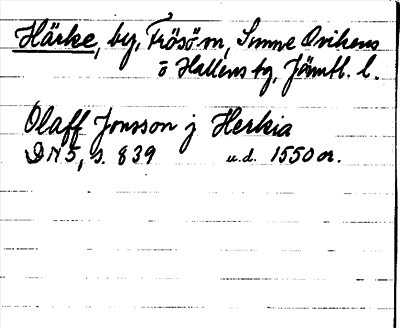 Härke, by, Frösö sn, Sunne Ovikens
o Hallens tg, Jämtl. l.
Olaff Jonsson j Herkia
DN 5, s. 839 u.d. 1550 or.